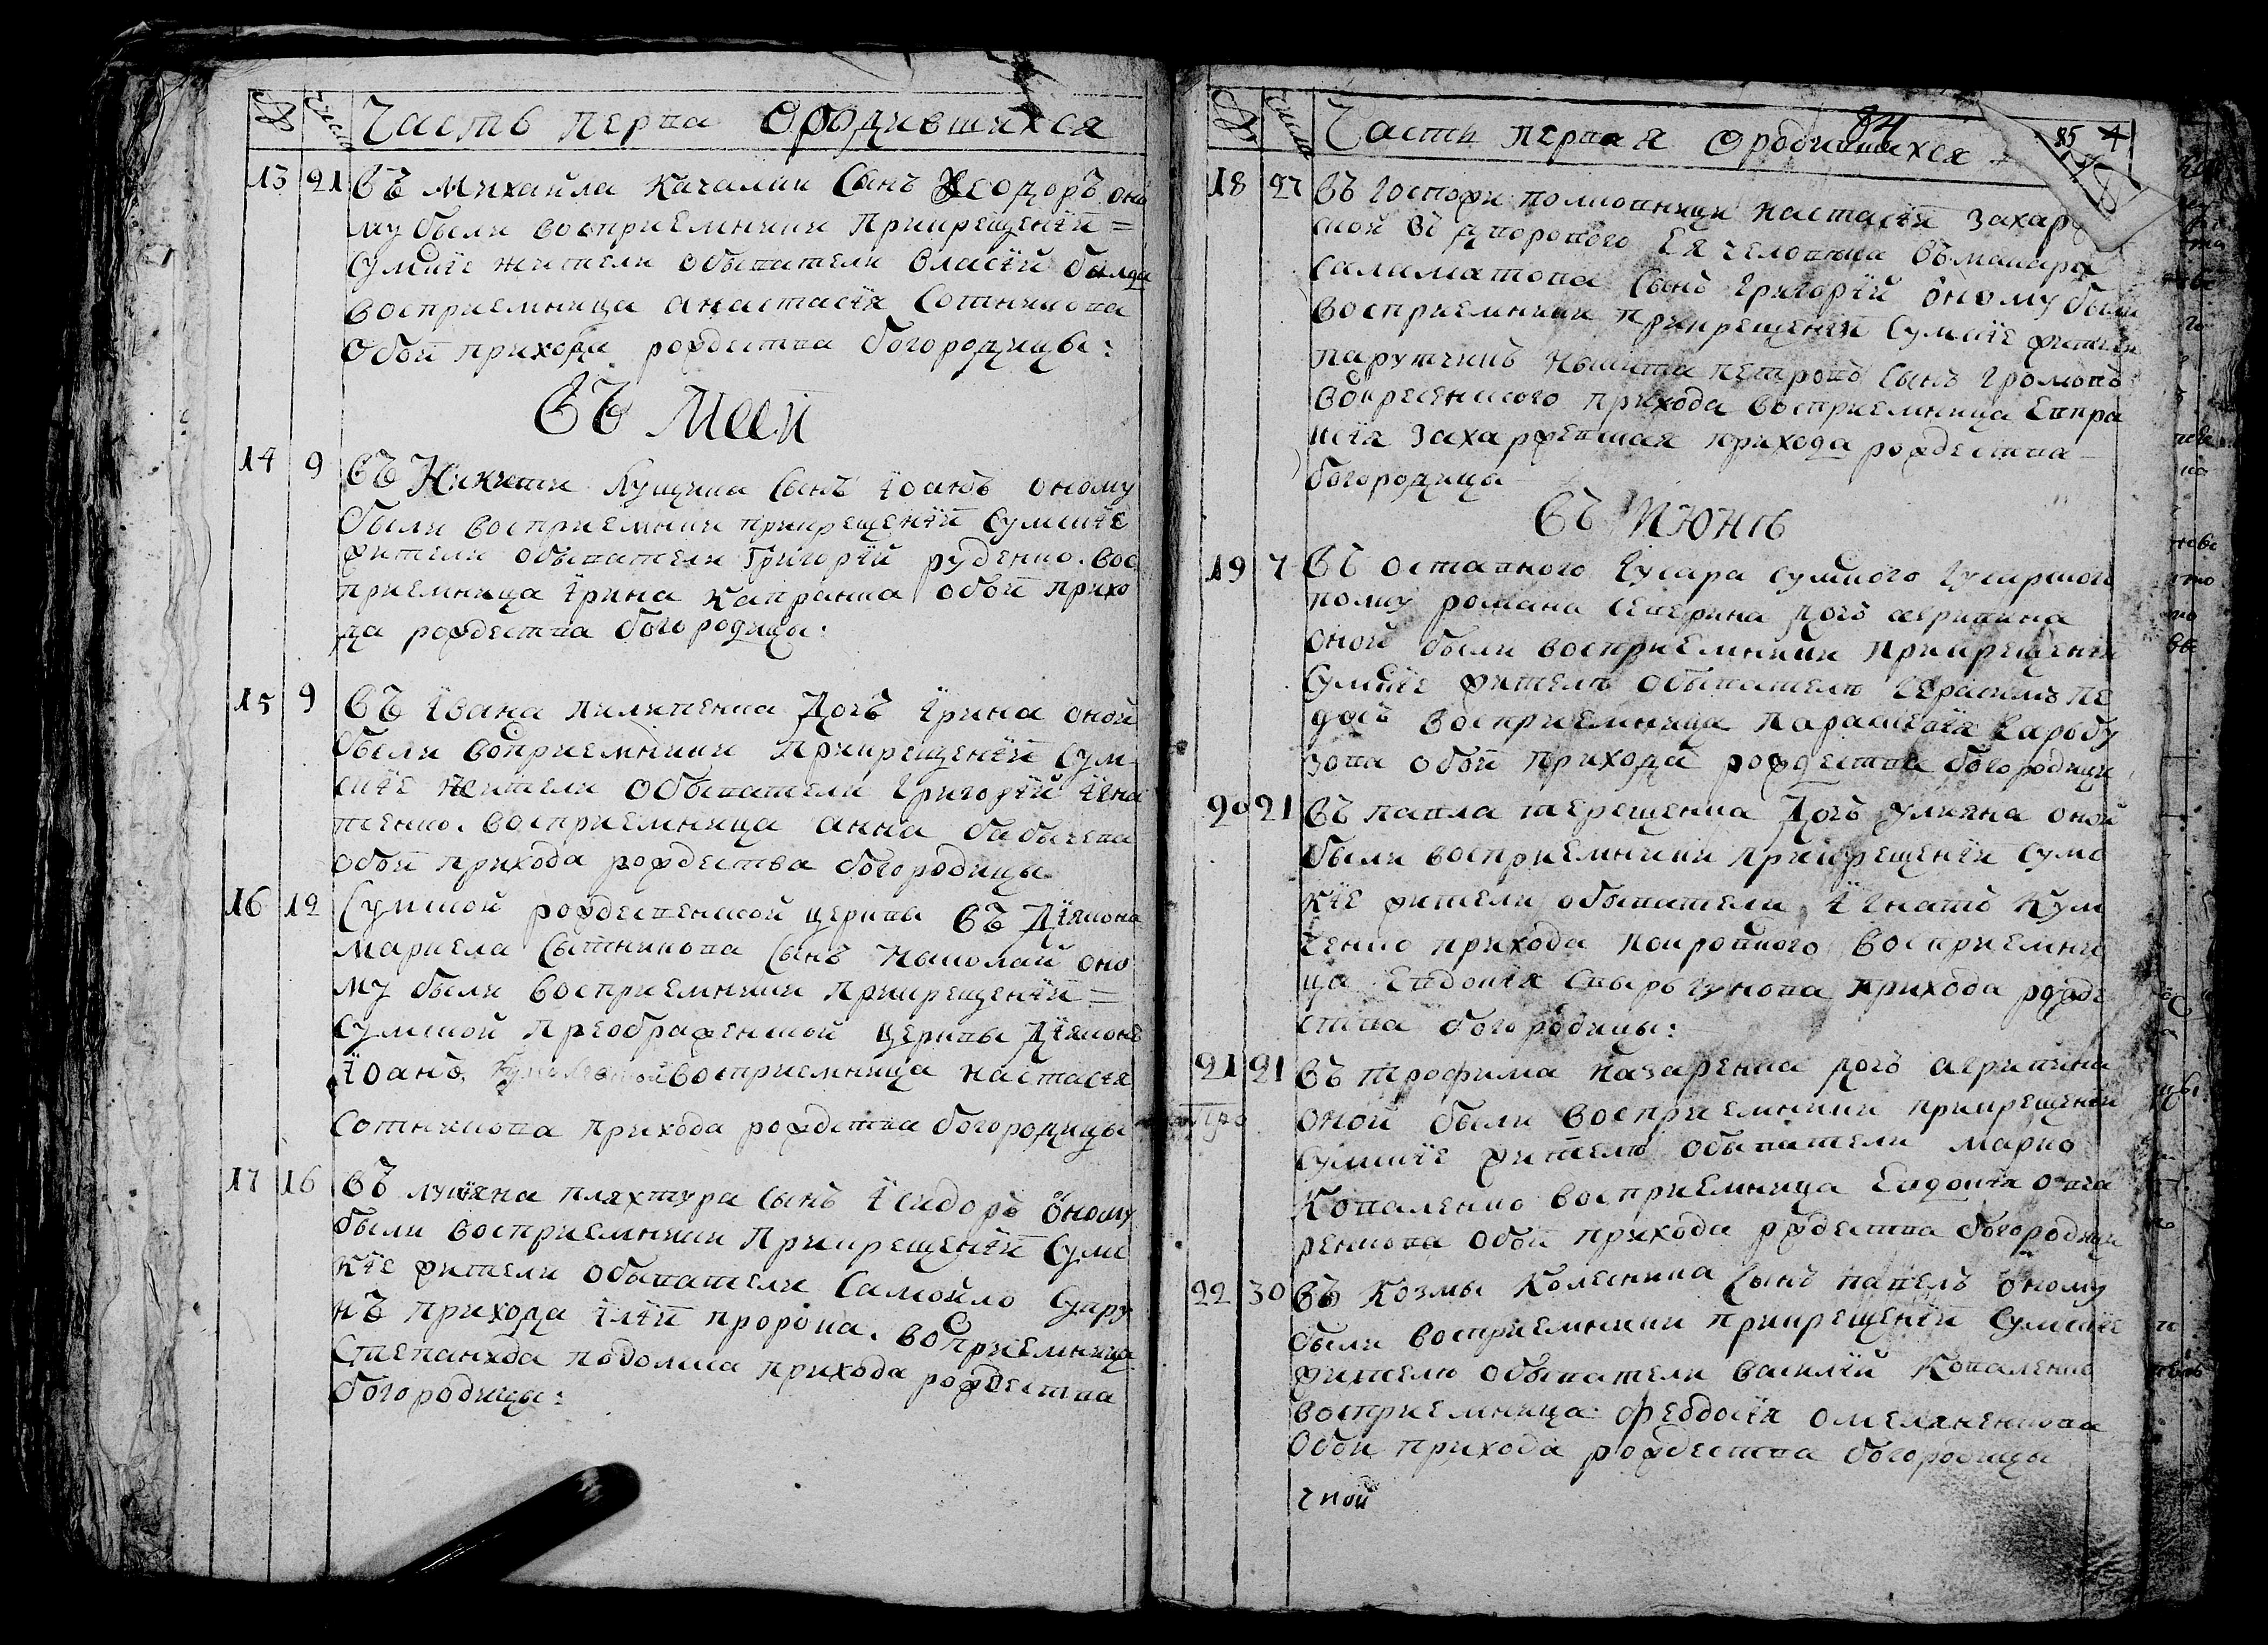 № Число Часть перва Ородившихся
13 21 Въ Михайла Качалки Сынъ Ѳеодоръ оно
му были восприемники Прикрещенїи =
Сумскїе жители обыватели Власїй была
восприемница анастасїя Сотникова
Обой прихода рождества богородицы:
Въ Маїи
14 9 Въ Никити Кущина Сынъ їоанъ оному
были восприемники прикрещенїи Сумскїе
жители обыватели Григорїй руденко. вос
приемница їрина Капранка обой прихо
да рождества богородицы:
15 9 Въ їзана пилипенка Дочъ їрина оной
были восприемники Прикрещенїи Сум
скїе жители Обыватели Григорїй їгна
тенко. восприемница анна бабичева
обой прихода рождества богородицы
16 12 Сумской рождественской церквы Въ Дїякона
маркела Сытникова Сынъ Николай оно
му были восприемники Прикрещенїи =
Сумской Преображенской церквы Дїяконъ
їоанъ восприемница настасїя
Сотникова прихода рождества богородицы
17 16 Въ лукїяна пляхтура Сынъ їсидоръ оному
были восприемники Прикрещенїи Сумс
кїе жители Обыватели Самойло Сапру
нъ прихода їлїи пророка. восприемница
Степанида подолка прихода рождества
богородицы:
№ Число Части первая Ородившихся 84 85 4
18 27 Въ госпожи полковници настасїи захар
ской въ дворового Ея человека въ макара
Салиматова Сынъ Григорїй оному были
восприемники прикрещенїи Сумскїе жители
паручикъ никита петровъ Сынъ громовъ
воскресенского прихода восприемница Евпра
ксїя захаржевская прихода рождества
богородица
Въ Июнь
19 7 Въ оставного гусара сумского гусарского
полку романа Северина дочъ агрипина
оной были восприемники Прикрещенїи
Сумскїе жителъ обывателъ герасимъ пе
досъ восприемница параскевїя гарбу
зова обой прихода рождества богородици
20 21 Въ павла терещенка Дочъ улияна оной
были восприемники прикрещенїи Сумс
кїе жители обыватели їгнатъ Кум
ченко прихода покровного восприемни
ца Евдокїя Спыръгунова прихода рожде
ства богородицы:
21 21 Въ трофима назаренка дочъ агрипина
оной были восприемники прикрещении
Сумскїе жителъ обыватели марко
Коваленко восприемница Евдокїя овча
ренкова обой прихода рождества богородици
22 30 Въ Козмы Колесника Сынъ павелъ оному
были восприемники прикрещенїи Сумскїе
жителю обыватели василїй Коваленко
восприемница феодосїя омеляненкова
Обои прихода рождества богородицы
чной